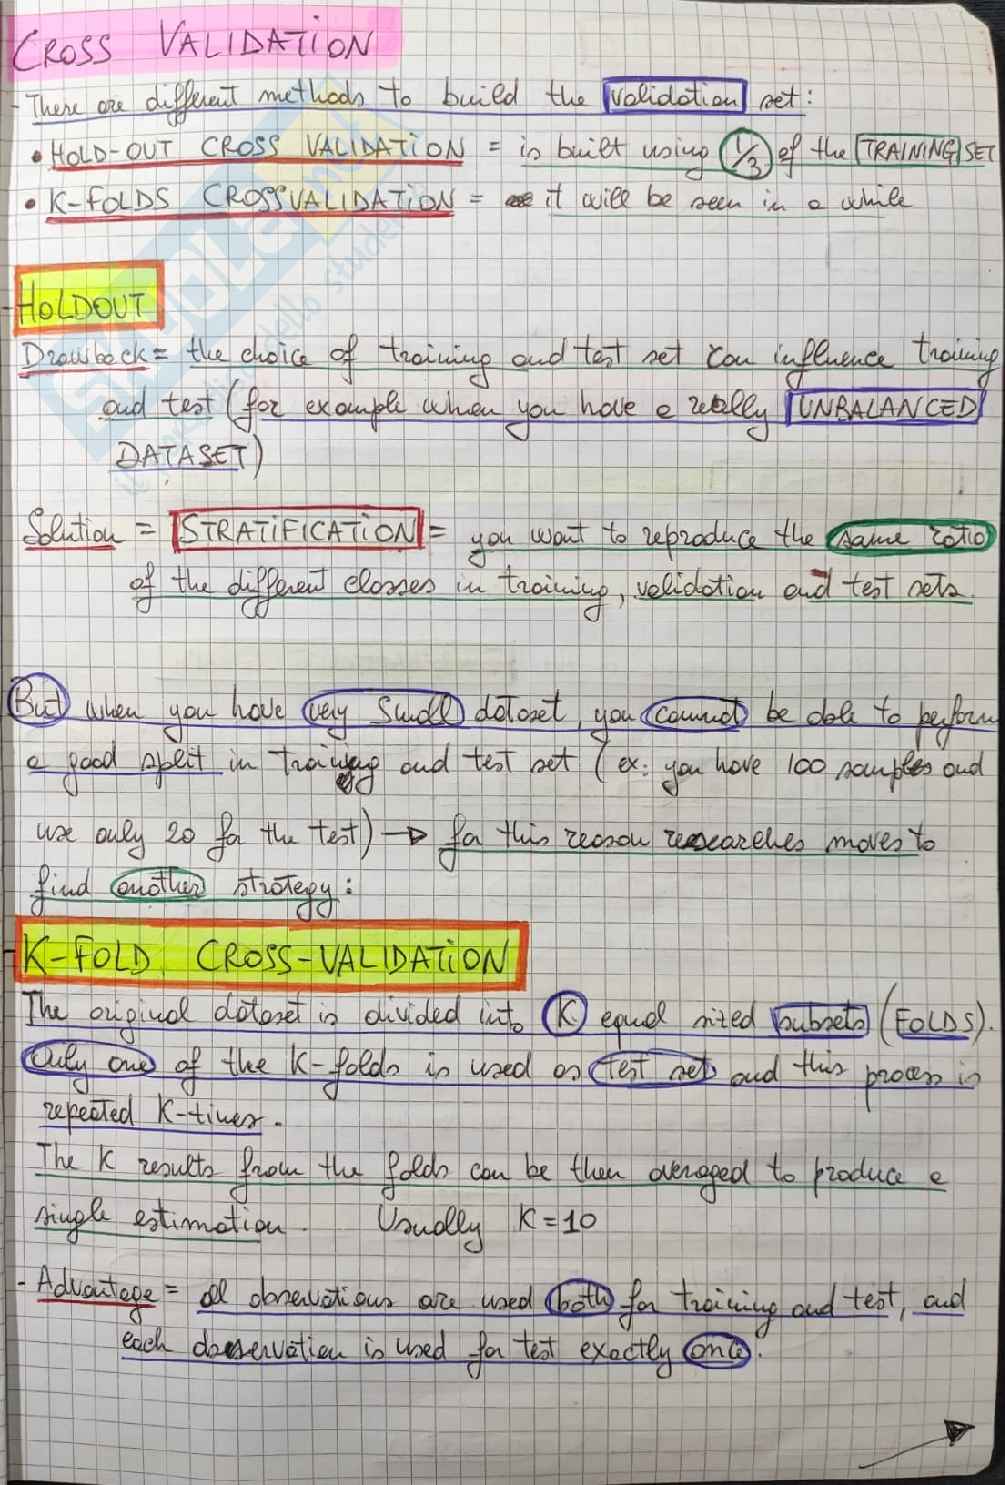 CROSS VALIDATION
- There are different methods to build the validation set:
• HOLD-OUT CROSS VALIDATION = is built using 1/3 of the TRAINING SET
• K-FOLDS CROSSVALIDATION = it will be seen in a while
- HOLDOUT
Drawback = the choice of training and test set can influence training
and test (for example when you have a really UNBALANCED
DATASET)
Solution = STRATIFICATION = you want to reproduce the same ratio
of the different classes in training, validation and test sets.
But when you have very small dataset, you cannot be able to perform
a good split in training and test set (ex: you have 100 samples and
use only 20 for the test) → for this reason researches moves to
find another strategy:
- K-FOLD CROSS-VALIDATION
The original dataset is divided into K equal sized subsets (FOLDS).
Only one of the K-folds is used as test set and this process is
repeated K-times.
The K results from the folds can be then averaged to produce a
single estimation. Usually K=10
- Advantage = all observations are used both for training and test, and
each observation is used for test exactly once.